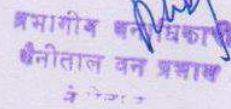 प्रभागीय वनाधिकारी
नैनीताल वन प्रभाग